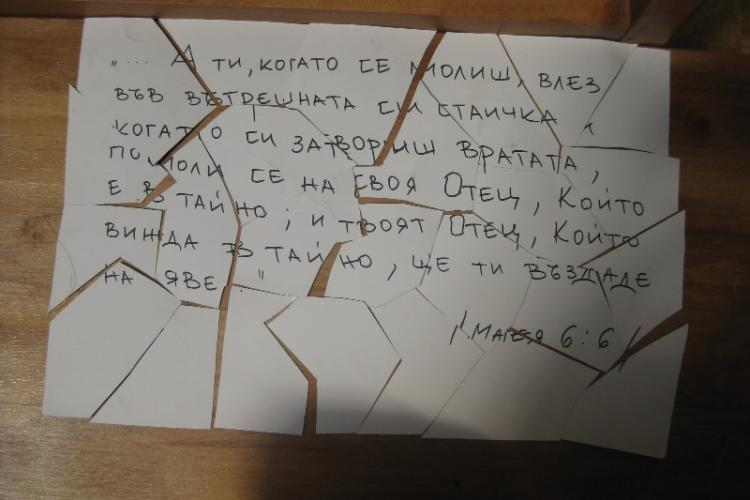 „... А ти, когато се молиш, влез
във вътрешната си стаичка и
когато си затвориш вратата,
помоли се на своя Отец, Който
е в тайно; и твоят Отец, Който
вижда в тайно, ще ти въздаде
на яве."
/Матея 6:6/